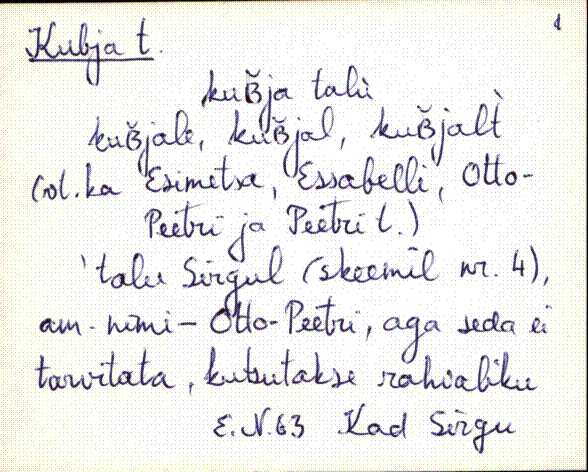 1
Kubja t.
kuB̆ja talù
kuB̆jale, kuB̆jal, kuB̆jalt̀
(vt. ka Esimetsa, Essabelli, Otto-
Peetri ja Peetri t.)
'talu Sirgul (skeemil nr. 4),
am. nimi – Otto-Peetri, aga seda ei
tarvitata, kutsutakse rahvaliku
E.N. 63 Kad Sirgu